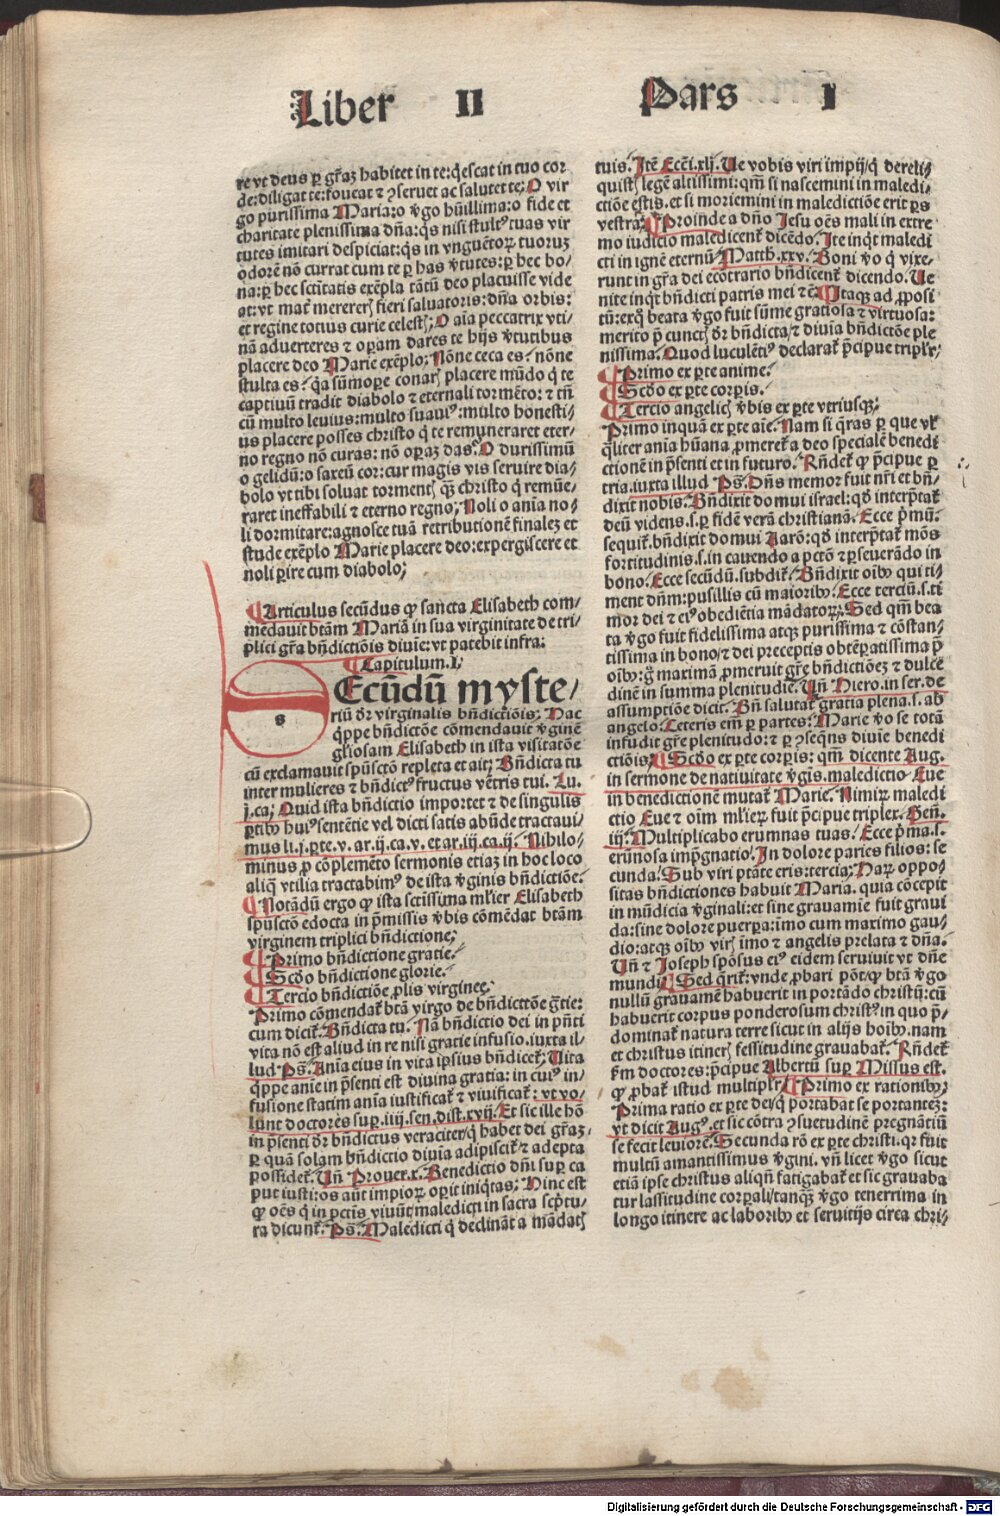 Liber II Pars I
re vt deus ꝑ gr̄aꝫ habitet in te: q̇escat in tuo cor
de: diligat te: foueat ⁊ ꝯseruet ac saluet te; O vir
go purissima Maria: o v̓go hūillima: o fide et
charitate plenissima dn̄a: q̇s nisi stultꝰ tuas vir
tutes imitari despiciat: q̇s in vnguētoꝝ tuoruꝫ
odorē nō currat cum te ꝑ has v̓tutes: ꝑ hec bo-
na: ꝑ hec sc̄itatis exēpla tātū deo placuisse vide
at: vt mat̓ mererer̄ fieri saluatoris: dn̄a orbis:
et regine totius curie celest̄; O aīa peccatrix vti/
nā aduerteres ⁊ oꝑam dares te hijs v̓tutibus
placere deo Marie exēplo; Nōne ceca es/ nōne
stulta es/ q̇a sūmoꝑe conar̄ placere mūdo q̇ te
captiuū tradit diabolo ⁊ eternali tormēto: ⁊ tn̄
cū multo leuius: multo suauiꝰ: multo honesti/
us placere posses christo q̇ te remuneraret eter/
no regno nō curas: nō oꝑaꝫ das. O durissimū
o gelidū: o saxeū cor: cur magis vis seruire dia/
bolo vt tibi soluat torment̄ qꝫ christo q̇ remūe/
raret ineffabili ⁊ eterno regno; Noli o anīa no/
li dormitare: agnosce tuā retributionē finaleꝫ et
stude exēplo Marie placere deo: expergiscere et
noli ꝑire cum diabolo;
¶Articulus secūdus ꝙ sancta Elisabeth com/
mēdauit btām Mariā in sua virginitate de tri/
plici gr̄a bn̄dictiōis diuīe: vt patebit infra:
¶Capitulum.I;
s
Ecūdū myste/
riū dr̄ virginalis bn̄dictiōis: Hac
q̇ppe bn̄dictōe cōmendauit v̓ginē
gl̄iosam Elisabeth in ista visitatōe
cū exclamauit spūsctō repleta et ait; Bn̄dicta tu
inter mulieres ⁊ bn̄dictꝰ fructus vētris tui. Lu.
j.ca; Quid ista bn̄dictio importet ⁊ de singulis
ꝑtibꝰ huiꝰ sentētie vel dicti satis abūde tractaui/
mus li.j.ꝑte.v.ar.ij.ca.v.et ar.iij.ca.ij. Nihilo/
minus ꝓ cōplemēto sermonis etiaꝫ in hoc loco
aliq̇ vtilia tractabimꝰ de ista v̓ginis bn̄dictiōe.
¶Notādū ergo ꝙ ista sctīssima mlīer Elisabeth
spūsctō edocta in p̄missis v̓bis cōmēdat btām
virginem triplici bn̄dictione;
¶Primo bn̄dictione gratie.
¶Scd̄o bn̄dictione glorie.
¶Tercio bn̄dictiōe ꝓlis virginee;
Primo cōmendat̄ btā virgo de bn̄dictiōe gr̄tie:
cum dicit̄. Bn̄dicta tu. Nā bn̄dictio dei in pn̄ti
vita nō est aliud in re nisi gratie infusio.iuxta il/
lud Ps̄. Anīa eius in vita ipsius bn̄dicet̄; Uita
q̇ppe anīe in pn̄senti est diuina gratia: in cuiꝰ in/
fusione statim anīa iustificat̄ ⁊ viuificat̄: vt vo/
lunt doctores suꝑ.iiij.sen.dist.xvij. Et sic ille hō
in pn̄senti dr̄ bn̄dictus veraciter/q̇ habet dei gr̄aꝫ.
ꝑ quā solam bn̄dictio diuīa adipiscit̄ ⁊ adepta
possidet̄. Un̄ Prouer.x. Benedictio dn̄i suꝑ ca
put iusti: os aūt impioꝝ oꝑit iniq̇tas; Hinc est
ꝙ oēs q̇ in pctīs viuūt/ maledicti in sacra scp̄tu/
ra dicunt̄. Ps̄. Maledicti q̇ declināt a mādat̄
tuis. Itē Eccī.xlj. Ue vobis viri impij/q̇ dereli/
quist̄ legē altissimi: qm̄ si nascemini in maledi/
ctiōe estis. et si moriemini in maledictiōe erit ꝑs
vestra; ¶Proinde a dn̄o Jesu oēs mali in extre
mo iudicio maledicent̄ dicēdo. Ite inq̇t maledi
cti in ignē eternū. Matth.xxv. Boni v̓o q̇ vixe/
runt in gr̄a dei ecōtrario bn̄dicent̄ dicendo. Ue
nite inq̇t bn̄dicti patris mei ⁊c̄. ¶Itaqꝫ ad ꝓposi
tū: exq̇ beata v̓go fuit sūme gratiosa ⁊ virtuosa:
merito p̄ cunct̄ dr̄ bn̄dicta/⁊ diuīa bn̄dictiōe ple
nissima. Quod luculētiꝰ declarat̄ p̄cipue triplr̄;
¶Primo ex ꝑte anime.
¶Scd̄o ex ꝑte corꝑis.
¶Tercio angelic̄ v̓bis ex ꝑte vtriusqꝫ;
Primo inquā ex ꝑte aīe. Nam si q̇ras ꝑ que vl̄
q̇liter anīa hūana ꝓmeret̄ a deo specialē benedi
ctionē in pn̄senti et in futuro. Rn̄det̄ ꝙ p̄cipue ꝑ
tria.iuxta illud Ps̄. Dn̄s memor fuit nr̄i et bn̄/
dixit nobis. Bn̄dixit domui israel: qd̄ interp̄tat̄
deū videns.s.ꝑ fidē verā christianā. Ecce p̄mū.
sequit̄. bn̄dixit domui Aarō: qd̄ interp̄tat̄ mōs
fortitudinis.s.in cauendo a pctō ⁊ ꝑseuerādo in
bono. Ecce secūdū.subdit̄. Bn̄dixit oībꝰ qui ti/
ment dn̄m: pusillis cū maioribꝰ. Ecce terciū.s.ti
mor dei ⁊ eiꝰ obediētia mādatoꝝ; Sed qm̄ bea
ta v̓go fuit fidelissima atqꝫ purissima ⁊ cōstan/
tissima in bono/⁊ dei preceptis obtēperatissima p̄
oībꝰ: g̊ maximā ꝓmeruit gr̄e bn̄dictiōeꝫ ⁊ dulce
dinē in summa plenitudīe. Un̄ Hiero.in ser.de
assumptiōe dicit. Bn̄ salutat̄ gratia plena.s.ab
angelo. Ceteris em̄ ꝑ partes: Marie v̓o se totā
infudit gr̄e plenitudo: ⁊ ꝑ ꝯseqn̄s diuīe benedi
ctiōis; ¶Scd̄o ex ꝑte corꝑis: qm̄ dicente Aug.
in sermone de natiuitate v̓gīs.maledictio Eue
in benedictionē mutat̄ Marie. Nimiꝝ maledi
ctio Eue ⁊ oīm mlīeꝝ fuit p̄cipue triplex. Gen̄.
iij. Multiplicabo erumnas tuas. Ecce p̄ma.s.
erūnosa imp̄gnatio. In dolore paries filios: se
cunda. Sub viri ptāte eris: tercia; Haꝝ oppo/
sitas bn̄dictiones habuit Maria. quia cōcepit
in mūdicia v̓ginali: et sine grauamīe fuit graui
da: sine dolore puerꝑa: imo cum maximo gau/
dio: atqꝫ oībꝰ vir̄ īmo ⁊ angelis prelata ⁊ dn̄a.
Un̄ ⁊ Joseph spōsus eiꝰ eidem seruiuit vt dn̄e
mundi; ¶Sed q̇rit̄: vnde ꝓbari pōt/ꝙ btā v̓go
nullū grauamē habuerit in portādo christū: cū
habuerit corpus ponderosum christꝰ in quo p̄/
dominat̄ natura terre sicut in alijs hoībꝰ. nam
et christus itiner̄ fessitudine grauabat̄. Rn̄det̄
ẜm doctores: p̄cipue Albertū suꝑ Missus est.
ꝙ ꝓbat̄ istud multiplr̄; ¶Primo ex rationibꝰ;
Prima ratio ex ꝑte dei/q̇ portabat se portanteꝫ:
vt dicit Augꝰ. et sic cōtra ꝯsuetudinē pregnātiū
se fecit leuiorē. Secunda rō ex ꝑte christi. qr fuit
multū amantissimus v̓gini. vn̄ licet v̓go sicut
etiā ipse christus aliqn̄ fatigabat̄ et sic grauaba
tur lassitudine corꝑali/tanqꝫ v̓go tenerrima in
longo itinere ac laboribꝰ et seruitijs circa chri/
Digitalisierung gefördert durch die Deutsche Forschungsgemeinschaft - DFG